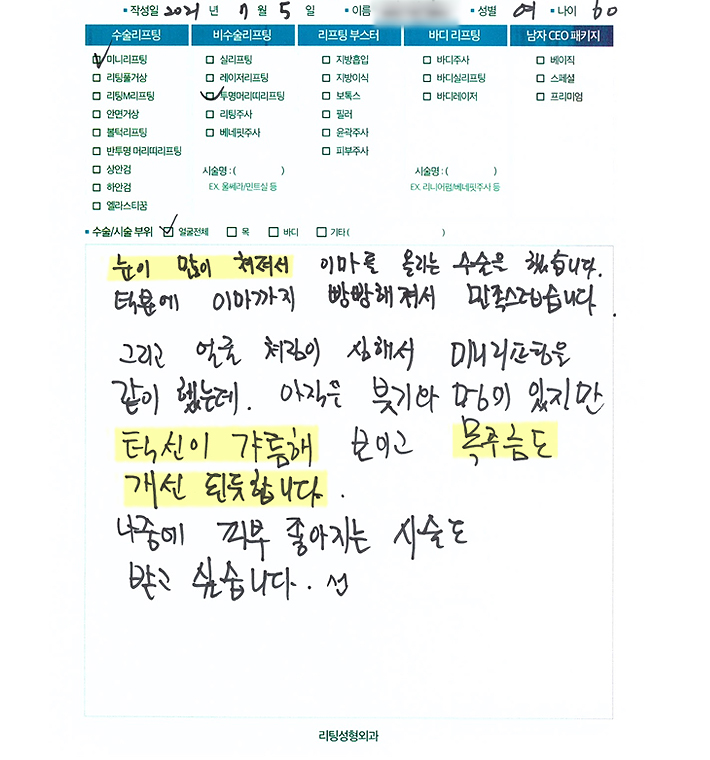 작성일 2021 년 7 월 5 일 이름 성별 여 나이 60
수술리프팅 비수술리프팅 리프팅 부스터 바디 리프팅 남자 CEO 패키지
미니리프팅 실리프팅 지방흡입 바디주사 베이직
리팅풀거상 레이저리프팅 지방이식 바디실리프팅 스페셜
리팅M리프팅 투명머리띠리프팅 보톡스 바디레이저 프리미엄
안면거상 리팅주사 필러
볼턱리프팅 베네핏주사 윤곽주사
반투명 머리띠리프팅 피부주사
상안검 시술명 : ( ) 시술명 : ( )
하안검 EX. 울쎄라/민트실 등 EX. 리니어펌/베네핏주사 등
엘라스티꿈
수술/시술 부위 얼굴전체 목 바디 기타 ( )
눈이 많이 쳐져서 이마를 올리는 수술을 했습니다.
덕분에 이마까지 빵빵해져서 만족스럽습니다.
그리고 얼굴 처짐이 심해서 미니리프팅을
같이 했는데. 아직은 붓기와 멍이 있지만
턱선이 갸름해 보이고 목주름도
개선 된듯합니다.
나중에 피부 좋아지는 시술도
받고 싶습니다.
리팅성형외과